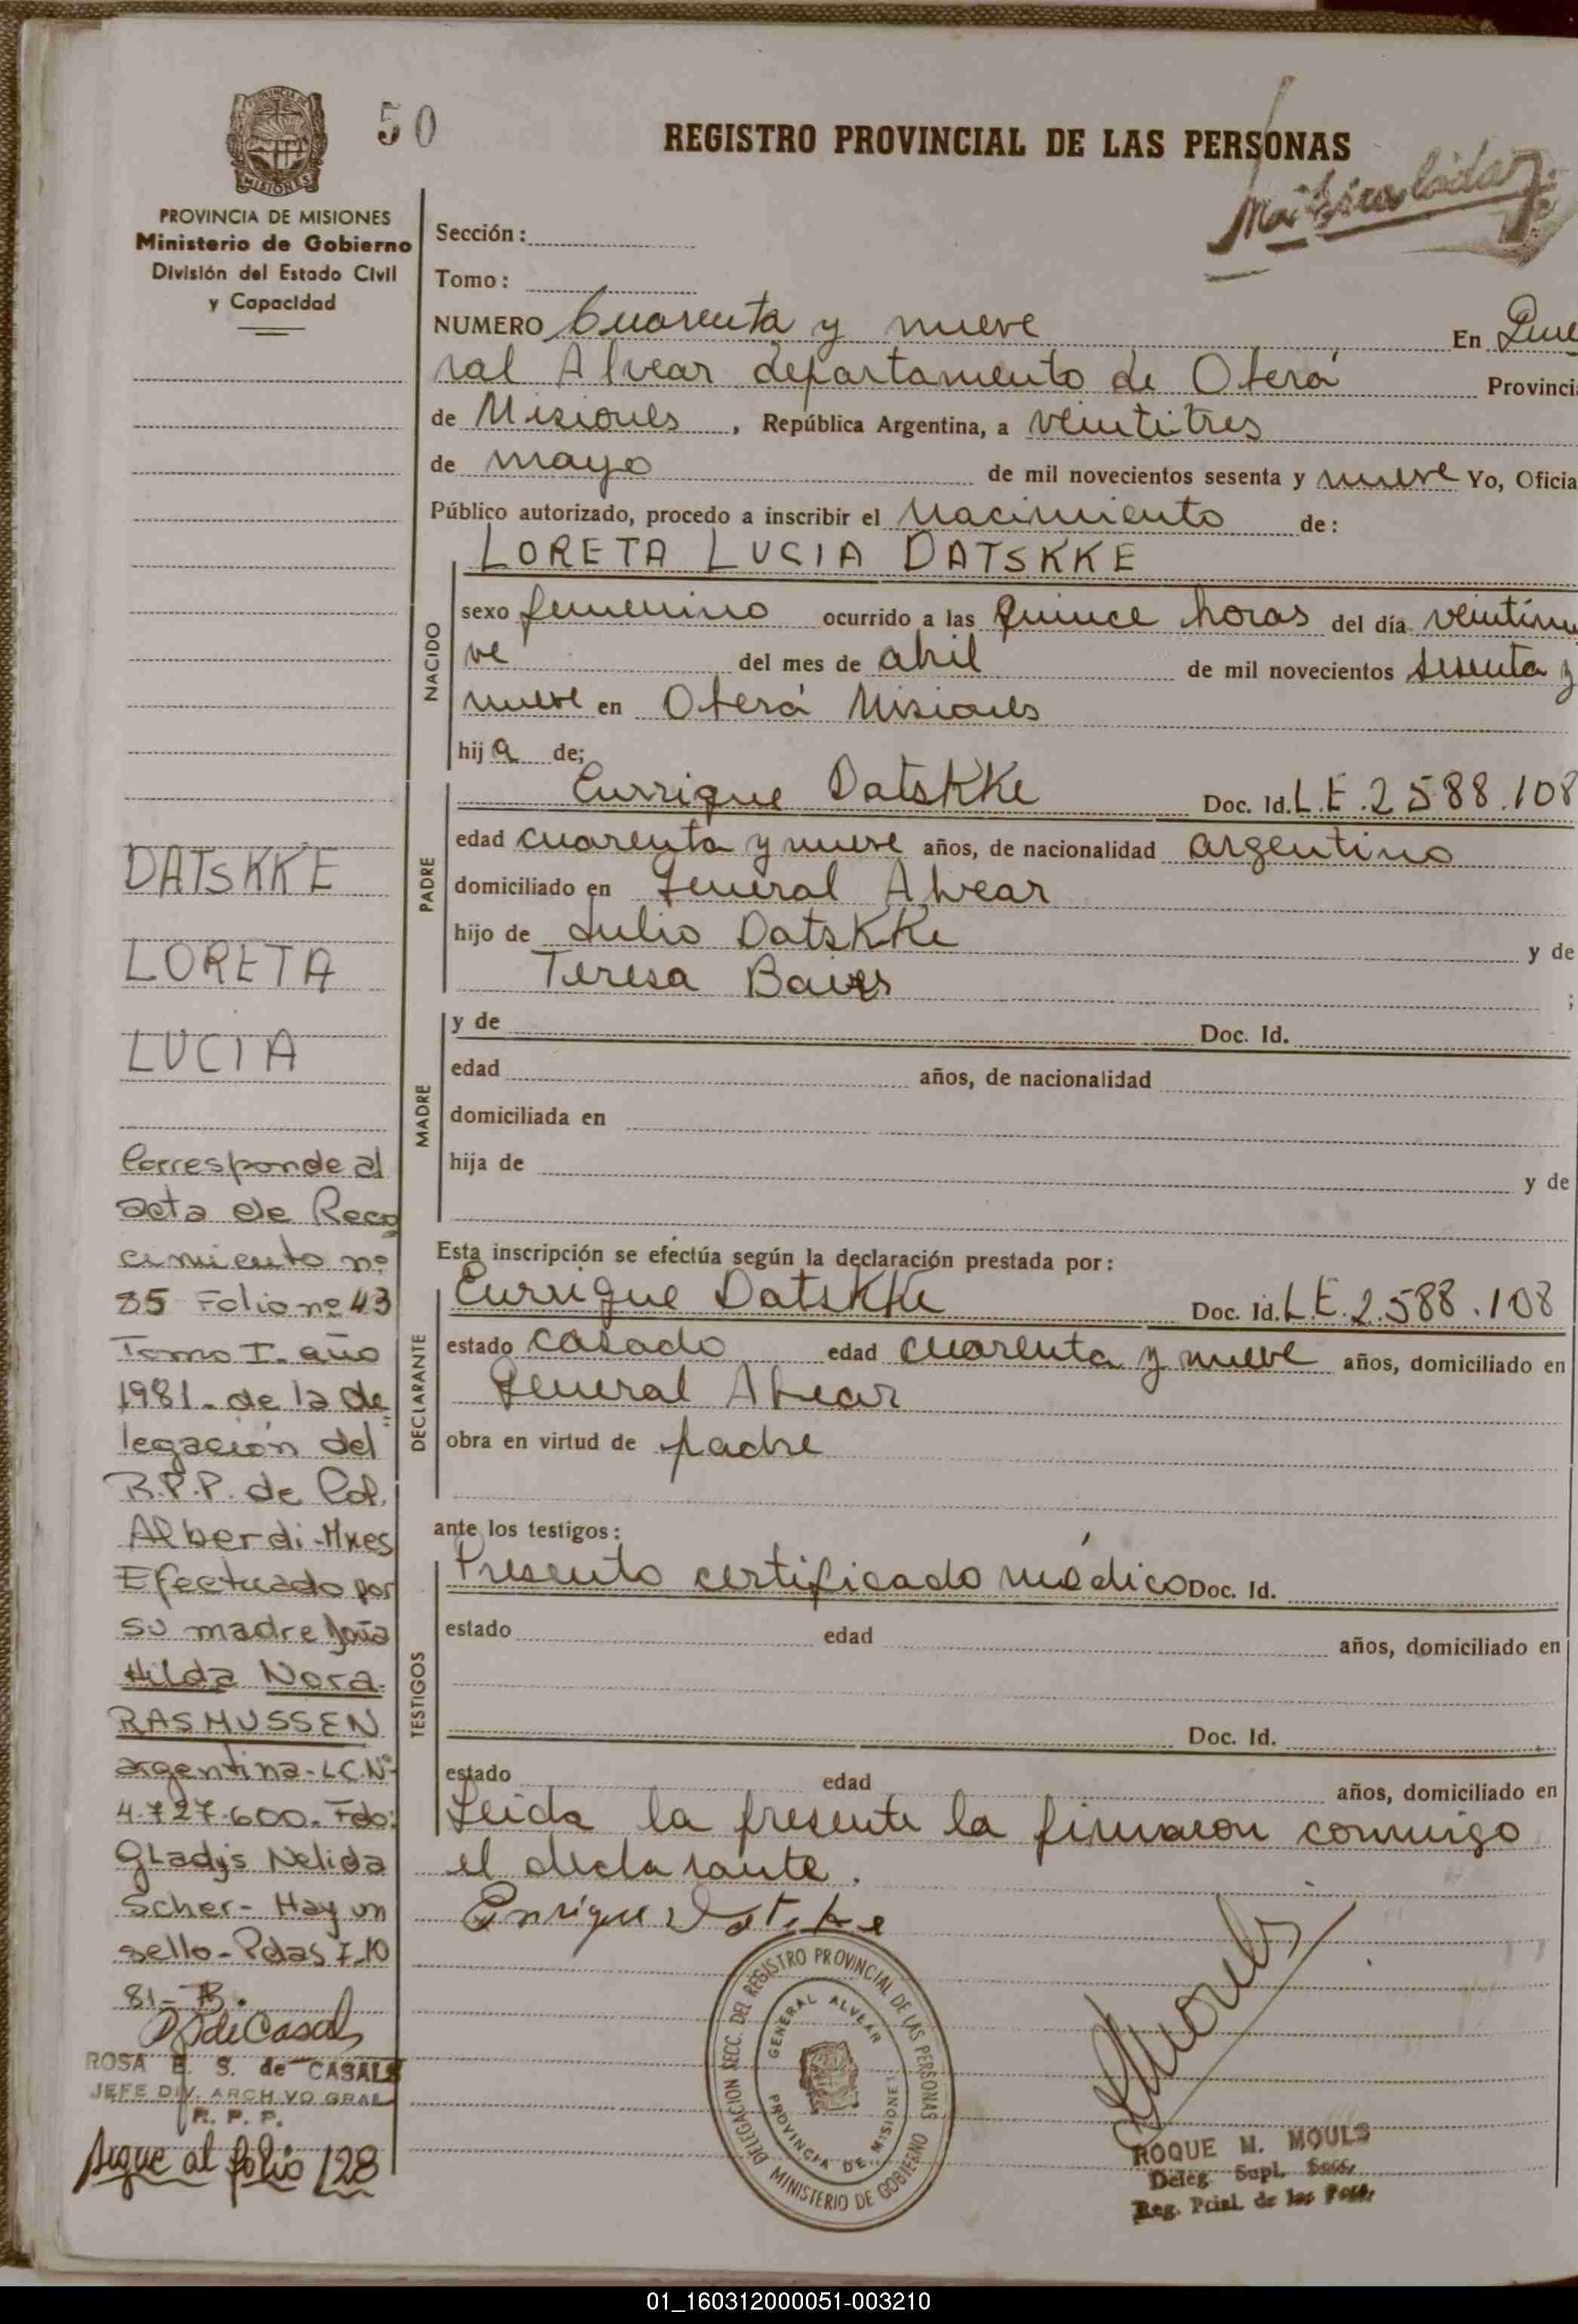 50
REGISTRO PROVINCIAL DE LAS PERSONAS
PROVINCIA DE MISIONES
Ministerio de Gobierno
División del Estado Civil
y Capacidad
Sección:
Tomo:
NUMERO Cuarenta y nueve En Gene
ral Alvear departamento de Oberá Provinci
de Misiones, República Argentina, a veintitres
de mayo de mil novecientos sesenta y nueve Yo, Oficia
Público autorizado, procedo a inscribir el Nacimiento de:
LORETA LUCIA DATSKKE
NACIDO
sexo femenino ocurrido a las quince horas del día veintinu
ve del mes de abril de mil novecientos sesenta y
nueve en Oberá Misiones
hij a de;
PADRE
Enrrique Datskke Doc. Id. L.E. 2588.108
edad cuarenta y nueve años, de nacionalidad argentino
domiciliado en General Alvear
hijo de Julio Datskke y de
Teresa ;
MADRE
y de Doc. Id.
edad años, de nacionalidad
domiciliada en
hija de y de
Esta inscripción se efectúa según la declaración prestada por:
DECLARANTE
Enrrique Datskke Doc. Id. L.E. 2.588.108
estado casado edad cuarenta y nueve años, domiciliado en
General Alvear
obra en virtud de padre
ante los testigos:
TESTIGOS
Presento certificado médico Doc. Id.
estado edad años, domiciliado en
Doc. Id.
estado edad años, domiciliado en
Leida la presente la firmaron conmigo
el declarante.
Enrique Datskke
DELEGACION SECC. DEL REGISTRO PROVINCIAL DE LAS PERSONAS
MINISTERIO DE GOBIERNO
GENERAL ALVEAR
PROVINCIA DE MISIONES
ROQUE M. MOULS
Deleg. Supl. Secc.
Reg. Pcial. de las Pers.
DATSKKE
LORETA
LUCIA
Corresponde al
acta de Reco
cimiento nº
85 Folio nº 43
Tomo I. año
1981. de la de
legación del
R.P.P. de Col.
Alberdi-Mnes
Efectuado por
su madre doña
Hilda Nora.
RASMUSSEN
argentina-L.C.Nº
4.727.600. Fdo:
Gladys Nelida
Scher- Hay un
sello-Pdas 7-10
81-
ROSA E. S. de CASALS
JEFE DIV. ARCHIVO GRAL
R. P. P.
Sigue al folio 128
01_160312000051-003210